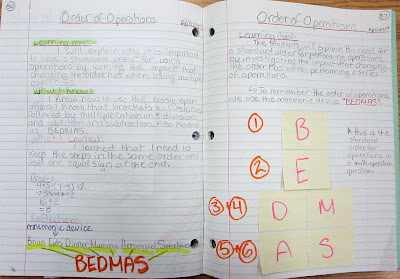 Order of Operations
Learning Goal:
I will explain why it is important
to have a standard order for using
operations
changing the order has when using multiple
What I Know:
I know how to use the basic oper-
ations. I know that brackets
followed by multiplication and division
and addition and subtraction
is BEDMAS.
What I Learned:
I learned that I need to
keep the steps in the same order and
use one equal sign at the end.
Proof:
Reflection:
Mnemonic device
Brian Eats Dinner
BEDMAS
Order of Operations
Learning Goal:
The students will explain the need for
a standard order for performing operations
by investigating the impact that changing
the order has when performing a series
of operations.
To remember the order of operations,
we use the mnemonic device "BEDMAS".
① B
② E
③+④ D M
⑤+⑥ A S
this is the
standard
order for
operations in
a multi operation
question